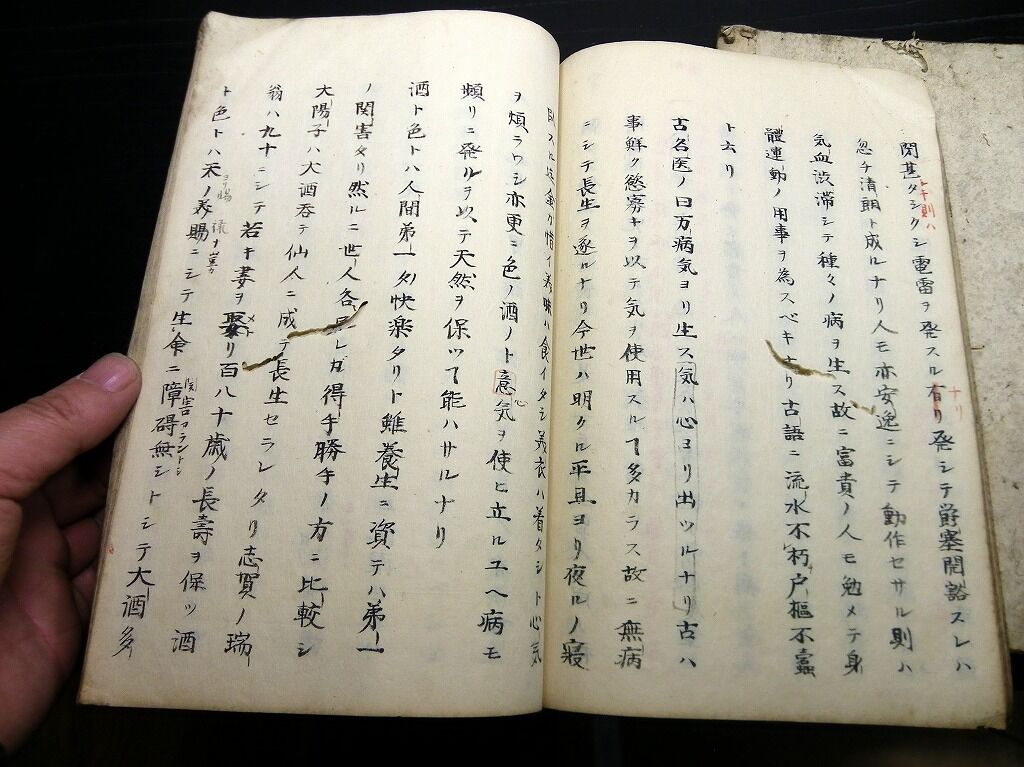 閉甚タシクシ電雷ヲ発スル有リ発シテ欝塞開豁スレハ
ト キ則ハ
ナリ
忽チ清明ト成ルナリ人モ亦安逸ニシテ動作セサル則ハ
気血渋滞シテ種々ノ病ヲ生ス故ニ富貴ノ人モ勉メテ身
體運動ノ用事ヲ為スベキナリ古語ニ流水不朽戸樞不蠹
ト云リ
古名医ノ曰万病気ヨリ生ス気ハ心ヨリ出ツルナリ古ハ
事鮮ク慾寡キヲ以テ気ヲ使用スルヿ多カラス故ニ無病
ニシテ長生ヲ遂ルナリ今世ハ明クル平旦ヨリ夜ルノ寝
スル迄金カ惜イ美味ハ食イタシ美衣ハ着タシト心気
ヲ煩ラワシ亦更ニ色ノ酒ノト意気ヲ使ヒ立ルユヘ病モ
心
頻リニ発ルヲ以テ天然ヲ保ツヿ能ハサルナリ
酒ト色トハ人間第一タ快楽タリト雖養生ニ資テハ第一
ノ関害タリ然ルニ世人各己レガ得手勝手ノ方ニ比較シ
大陽子ハ大酒呑テ仙人ニ成テ長生セラレタリ志賀ノ瑞
翁ハ九十ニシテ若キ妻ヲ娶リ百八十歳ノ長壽ヲ保ツ酒
メト
ト色トハ天ノ賜ニシテ生命ニ障碍無シトシテ大酒多
ヨリ賜